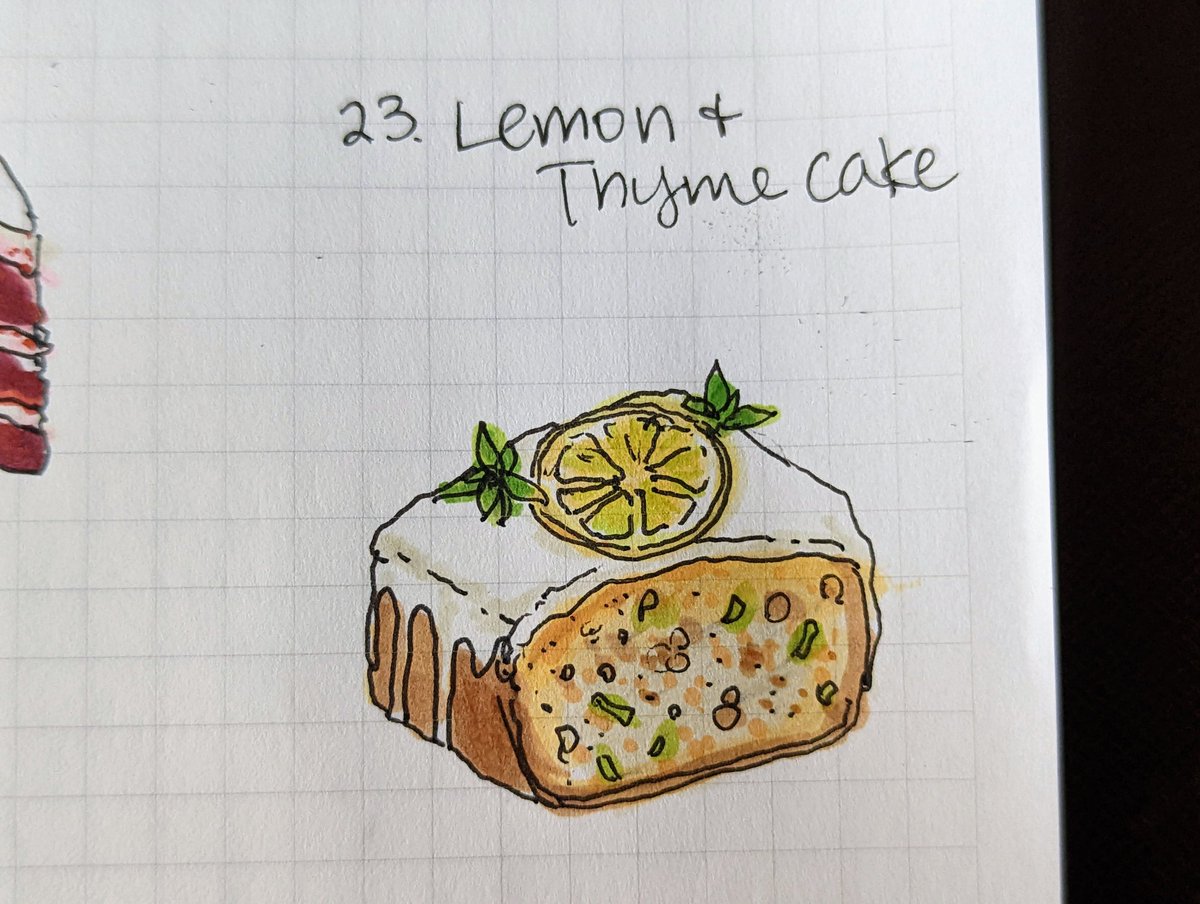 23. Lemon +
Thyme Cake